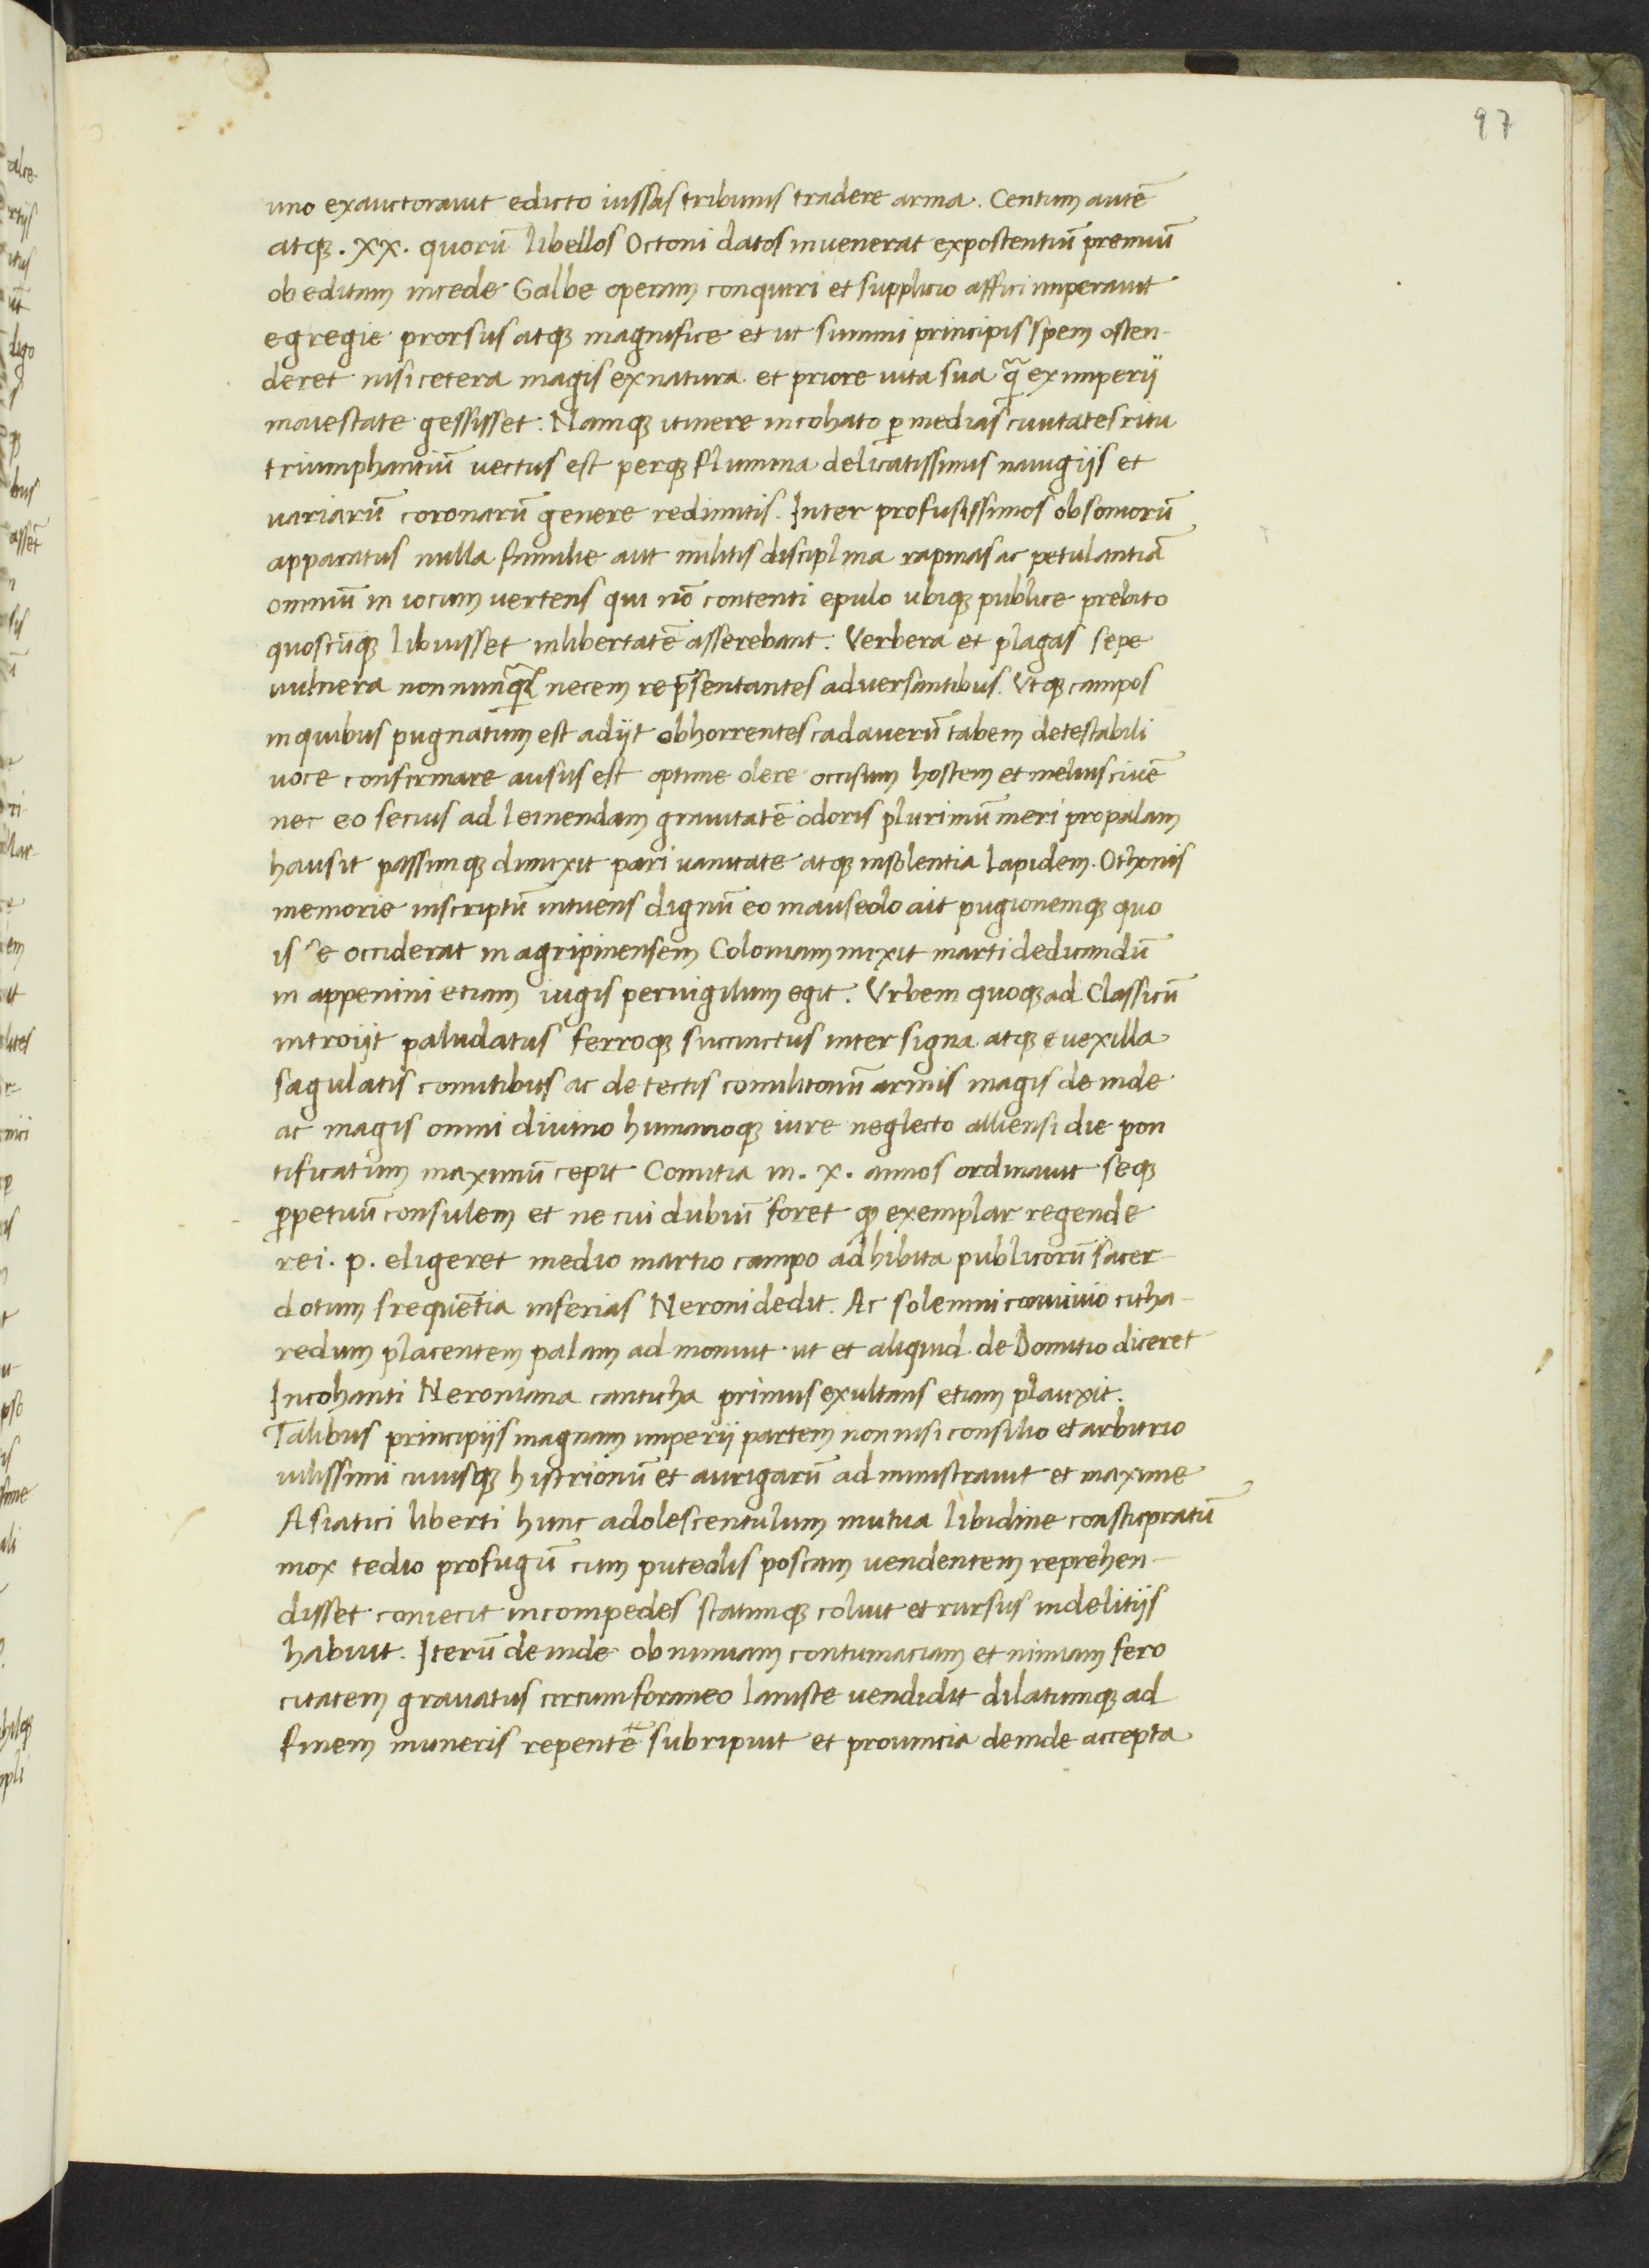 97
uno exauctorauit edicto iussas tribunis tradere arma. Centum autē
atqꝫ .XX. quorū libellos Octoni datos inuenerat expostentiū premiū
ob editam incede Galbe operam conquiri et supplicio affici imperauit
egregie prorsus atqꝫ magnifice et ut summi principis spem osten-
deret nisi cetera magis ex natura et priore uita sua q̄ ex imperij
maiestate gessisset. Namqꝫ itinere incohato ꝑ medias ciuitates ritu
triumphantiū uectus est perqꝫ flumina delicatissimis nauigijs et
uariarū coronarū genere redimitis. Inter profusissimos obsoniorū
apparatus nulla familie aut militis disciplina rapinas ac petulantiā
omniū in iocum uertens qui nō contenti epulo ubiqꝫ publice prebito
quoscūqꝫ libuisset in libertatē asserebant. Verbera et plagas sepe
uulnera non nunq̄ necem rep̄sentantes aduersantibus. Vtqꝫ campos
in quibus pugnatum est adijt obhorrentes cadauerū tabem detestabili
uoce confirmare ausus est optime olere occisum hostem et melius ciuē
nec eo secius ad leniendam grauitatē odoris plurimū meri propalam
hausit passimqꝫ diuixit pari uanitate atqꝫ insolentia lapidem. Othonis
memorie inscriptū intuens dignū eo mauseolo ait pugionemqꝫ quo
is se occiderat in agripinensem Coloniam mixit marti dedicandū
in appenini etiam iugis peruigilium egit. Vrbem quoqꝫ ad Classicū
introijt paludatus ferroqꝫ succinctus inter signa atqꝫ e uexilla
sagulatis comitibus ac detectis comilitonū armis magis deinde
ac magis omni diuino humanoqꝫ iure neglecto alliensi die pon
tificatum maximū cepit Comitia in .X. annos ordinauit seqꝫ
ꝑpetuū consulem et ne cui dubiū foret qꝫ exemplar regende
rei. p. eligeret medio martio campo adhibita publicorū sacer-
dotum frequētia inferias Neroni dedit. Ac solemni conuiuio citha-
redum placentem palam admonuit ut et aliquid de Domitio diceret
Incohanti Neroniana canticha primus exultans etiam plauxit.
Talibus principijs magnam imperij partem non nisi consilio et arbitrio
uilissimi cuiusqꝫ histrionū et aurigarū administrauit et maxime
Asiatici liberti hunc adolescentulum mutua libidine constupratū
mox tedio profugū cum puteolis poscam uendentem reprehen-
disset coniecit in compedes statimqꝫ soluit et rursus in delitijs
habuit. Iterū deinde ob nimiam contumaciam et nimiam fero
citatem grauatus circumforaneo laniste uendidit dilatumqꝫ ad
finem muneris repentē subripuit et prouincia deinde accepta